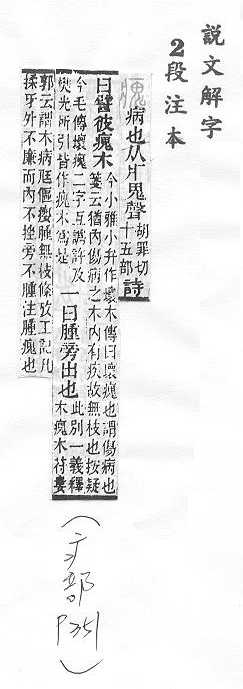 說文解字
2段注本
瘣
病也从疒鬼聲
胡罪切
十五部
詩
曰譬彼瘣木
今小雅小弁作壞木傳曰壞瘣也謂傷病也
箋云猶內傷病之木內有疾故無枝也按疑
今毛傳壞瘣二字互譌許及
樊光所引皆作瘣木爲是
一曰腫旁出也
此別一義釋
木瘣木符婁
郭云謂木病尪傴癭腫無枝條攷工記凡
揉牙外不廉而內不挫旁不腫注腫瘣也
(疒部 P351)